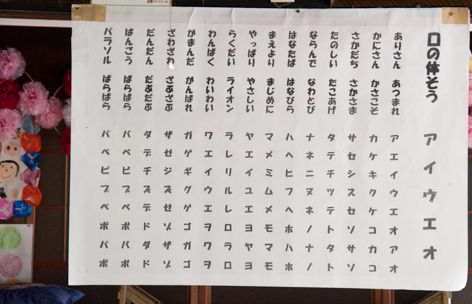 口の体そう アイウエオ
ありさん あつまれ アエイウエオアオ
かにさん かさこそ カケキクケコカコ
さかだち さかさま サセシスセソサソ
たのしい たこあげ タテチツテトタト
ならんで なわとび ナネニヌネノナノ
はなびら ハヘヒフヘホハホ
まえより まじめに マメミムメモマモ
やっぱり やさしい ヤエイユエヨヤヨ
らくだい ライオン ラレリルレロラロ
わんぱく わいわい ワエイウエヲワヲ
がまんだ がんばれ ガゲギグゲゴガゴ
ざわざわ ざぶざぶ ザゼジズゼゾザゾ
だんだん だぶだぶ ダデヂヅデドダド
ばんごう ばらばら バベビブベボバボ
パラソル ぱらぱら パペピプペポパポ